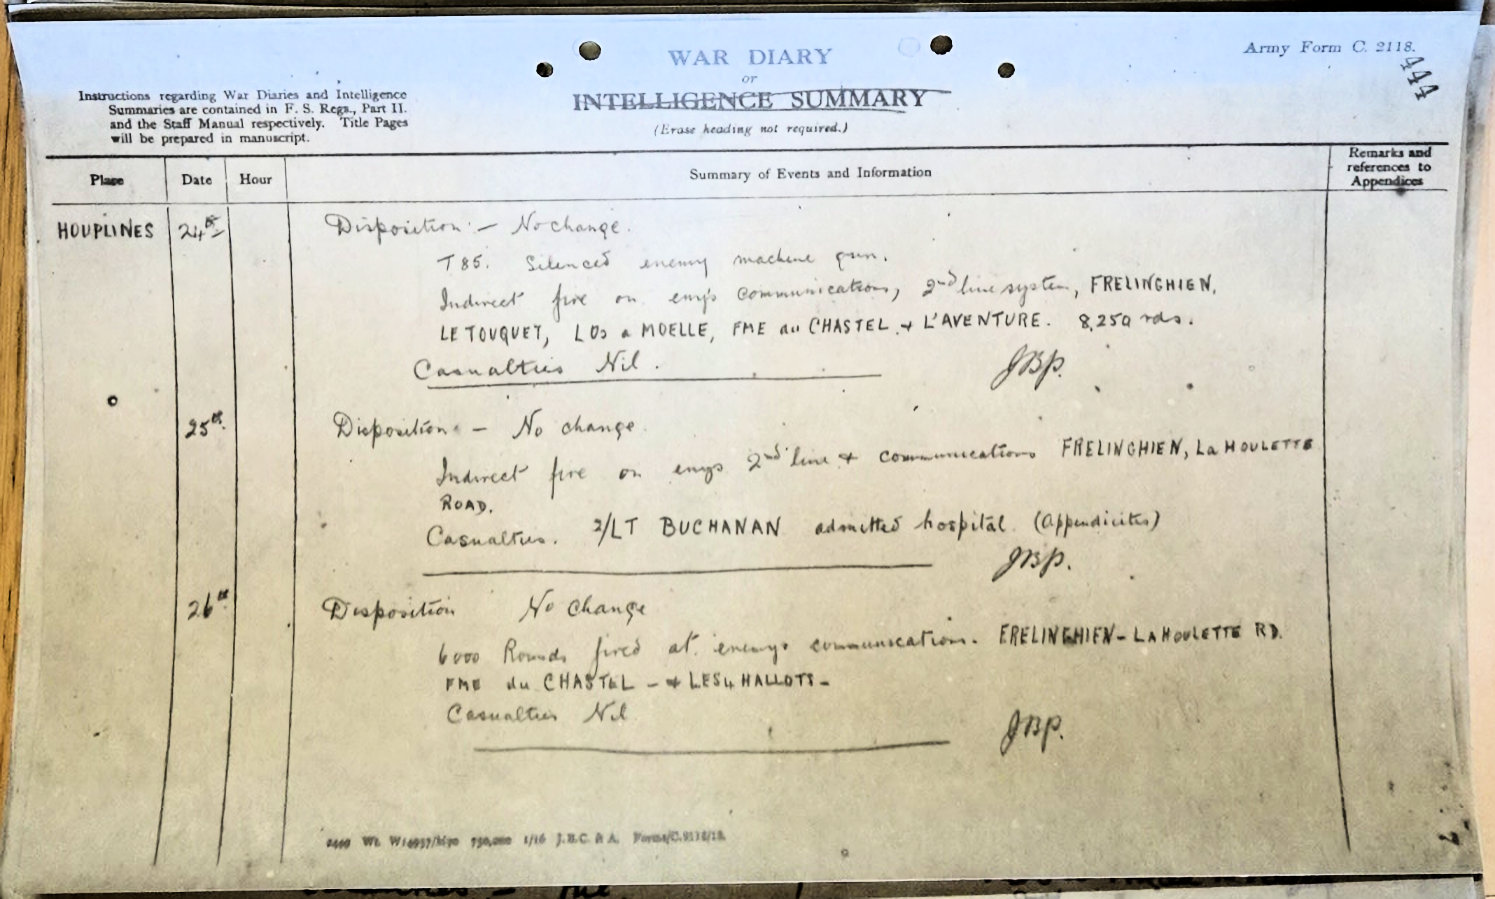 WAR DIARY
or
INTELLIGENCE SUMMARY
(Erase heading not required.)
Army Form C. 2118.
444
Instructions regarding War Diaries and Intelligence
Summaries are contained in F. S. Regs., Part II.
and the Staff Manual respectively. Title Pages
will be prepared in manuscript.
Place Date Hour Summary of Events and Information Remarks and
references to
Appendices
HOUPLINES 24th Disposition :- No change.
T 85. Silenced enemy machine gun.
Indirect fire on emy's communications, 2nd line system, FRELINGHIEN,
LE TOUQUET, MOELLE, FME du CHASTEL + L'AVENTURE. 8,250 rds.
Casualties Nil. JBP.
25th. Disposition :- No change.
Indirect fire on emys 2nd line + communications FRELINGHIEN, La HOULETTE
ROAD.
Casualties. 2/LT BUCHANAN admitted hospital (Appendicitis)
JBP.
26th Disposition No change
6000 Rounds fired at enemys communications. FRELINGHIEN - LA HOULETTE RD.
FME du CHASTEL - + LES 4 HALLOTS -
Casualties Nil
JBP.
1/16 J.B.C. & A. Forms/C.2118/12.